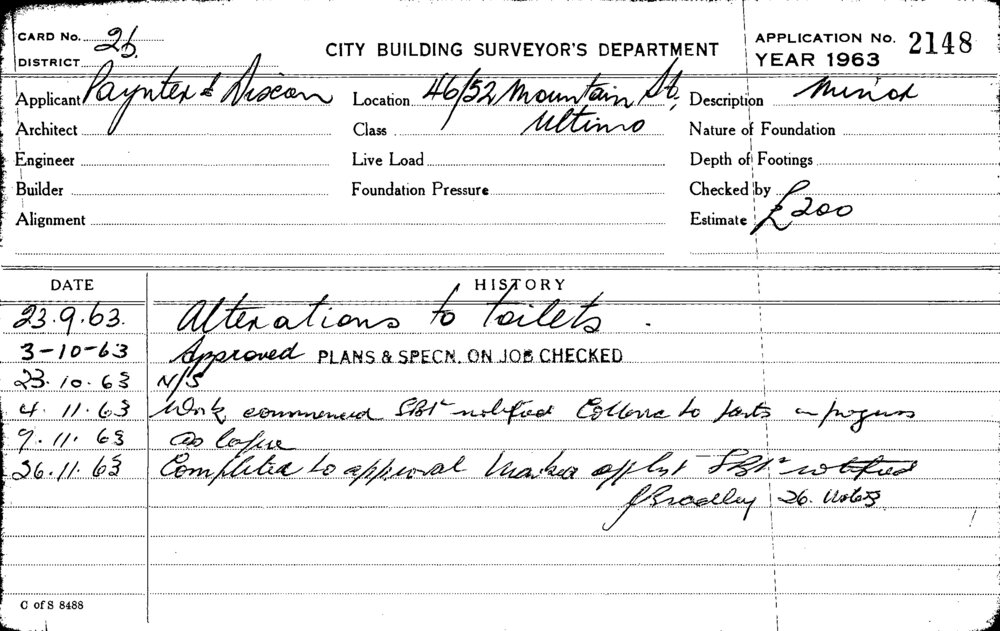 CARD No. 26.
DISTRICT
CITY BUILDING SURVEYOR'S DEPARTMENT
APPLICATION No. 2148
YEAR 1963
Applicant Paynter & Dixon
Location 46/52 Mountain St, Ultimo
Description Minor
Architect
Class
Nature of Foundation
Engineer
Live Load
Depth of Footings
Builder
Foundation Pressure
Checked by
Alignment
Estimate £200
DATE
HISTORY
23.9.63. Alterations to toilets.
3-10-63 Approved PLANS & SPECN. ON JOB CHECKED
23.10.63 N/S
4.11.63 Work commenced notified to in progress
9.11.63 as before
26.11.63 Completed to approval notified
J Bradley 26.
C of S 8488